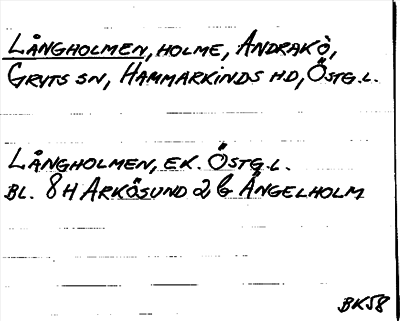 LÅNGHOLMEN, HOLME, ANDRAKÖ,
GRYTS SN, HAMMARKINDS HD, ÖSTG.L.
LÅNGHOLMEN, EK. ÖSTG.L.
BL. 8H ARKÖSUND 2 G ÄNGELHOLM
BK58